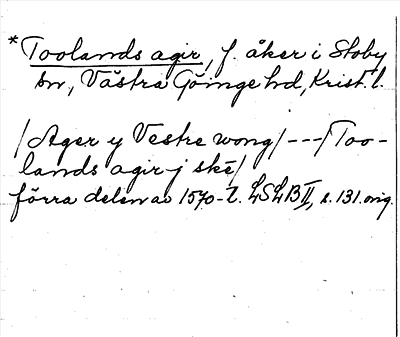 *Toolands agir, f. åker i Stoby
sn, Västra Göinge hd, Krist. l.
/Ager y Vestre wong/---/Too-
lands agir j skē/
förra delen av 1570-t. LSLB II, s. 131. orig.